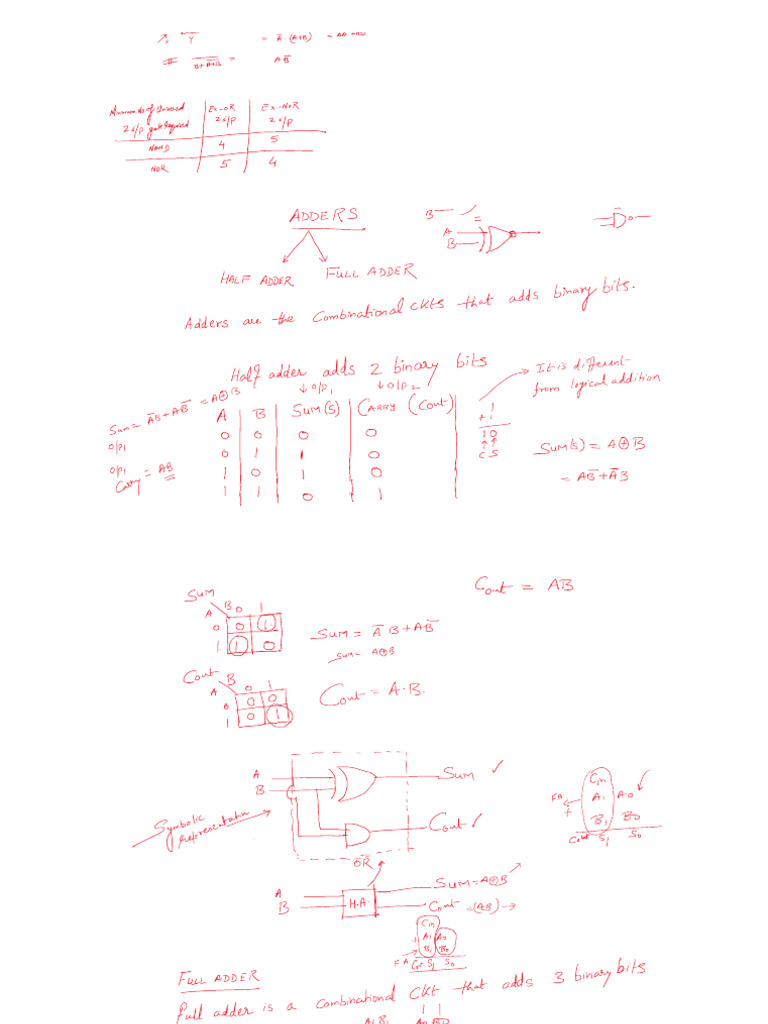 Y = Ā·(A+B)
# B+A+B = AB̅
Minimum No of Universal 2 i/p gate Required | Ex-OR 2 i/p | Ex-NOR 2 i/p
NAND 4 5
NOR 5 4
ADDERS
B
=
A
B
HALF ADDER FULL ADDER
Adders are the Combinational CKTS that adds binary bits.
Half adder adds 2 binary bits
It is different
from logical addition
↓ o/p1 ↓ o/p2
Sum = A̅B + AB̅ = A⊕B
o/p1
o/p1
Carry = AB
A B SUM(S) CARRY (Cout)
0 0 0 0
0 1 1 0
1 0 1 0
1 1 0 1
1
+1
10
↑↑
CS
Sum(s) = A⊕B
= AB̅ + A̅B
Cout = AB
SUM
A B 0 1
0 0 1
1 1 0
Sum = A̅B + AB̅
Sum = A⊕B
Cout
A B 0 1
0 0 0
1 0 1
Cout = A·B.
A
B
Sum ✓
Cout ✓
Symbolic
representation
Cin
FA ← A1 A0
+ B1 B0
Cout S1 S0
OR
A
B
H.A.
Sum = A⊕B
Cout = (AB) →
Cin
+ A1 A0
FA → B1 B0
Cout S1 S0
FULL ADDER
Full adder is a combinational CKT that adds 3 binary bits